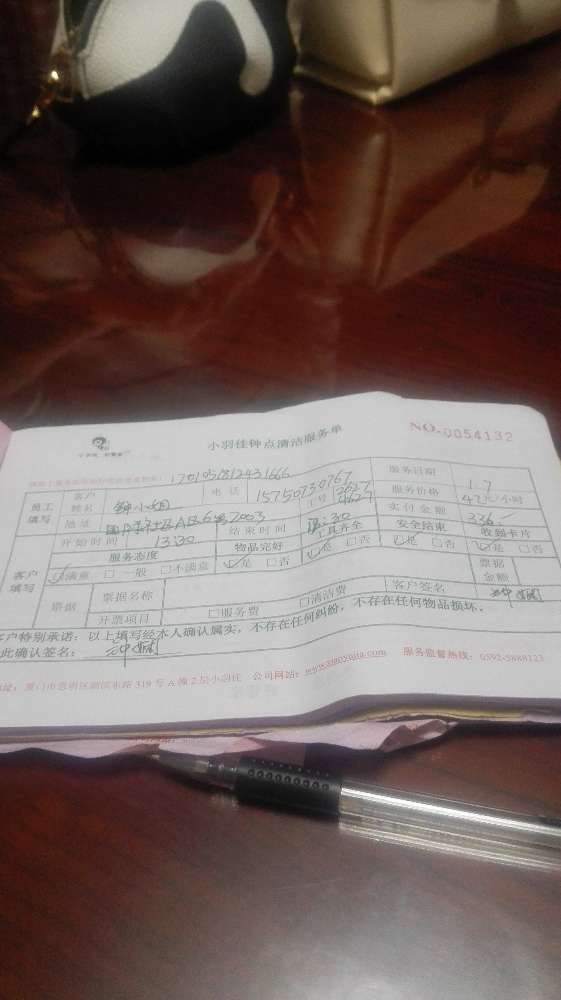 小羽佳钟点清洁服务单
NO.0054132
1701052812431666
员工填写 客户姓名 钟小姐 电话 15750730767 工号 3627 4627 服务日期 1.7
地址 服务价格 42元/小时
开始时间 13:30 结束时间 :30 实付金额 336
客户填写 服务态度 物品完好 工具齐全 安全结束 收到卡片
☑满意 □一般 □不满意 ☑是 □否 ☑是 □否 ☑是 □否 ☑是 □否
票据 票据名称 票据金额
开票项目 □服务费 □清洁费 客户签名
客户特别承诺:以上填写经本人确认属实,不存在任何纠纷,不存在任何物品损坏。
此确认签名:
地址:厦门市思明区湖滨东路319号A幢2层小羽佳 公司网站:www.xiaoyujia.com 服务监督热线:0592-5888123